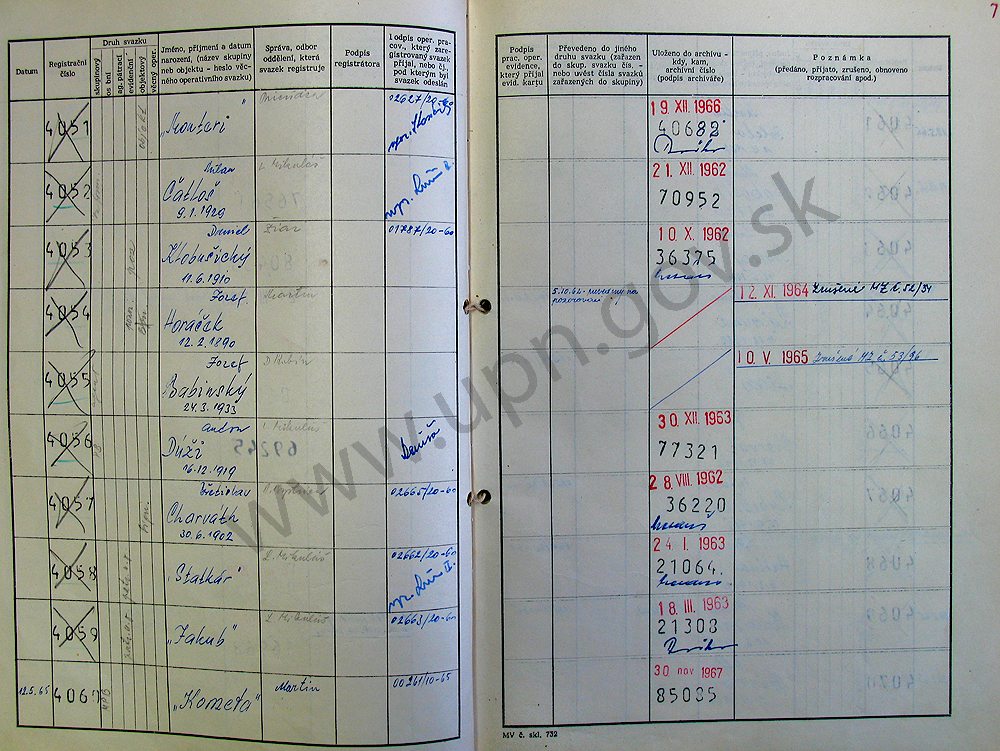 7
Datum
Registrační číslo
Druh svazku
skupinový
os bní
ag. pátrací
evidenční
objektový
věcný oper.
Jméno, příjmení a datum
narození, (název skupiny
neb objektu - heslo věc-
ného operativního svazku)
Správa, odbor
oddělení, která
svazek registruje
Podpis
registrátora
I odpis oper. pra-
cov., který zare-
gistrovaný svazek
přijal, nebo čj.
pod kterým byl
svazek odeslán
Podpis
prac. oper.
evidence,
který přijal
evid. kartu
Převedeno do jiného
druhu svazku (zařazen
do skup. svazku čís. -
nebo uvést čísla svazků
zařazených do skupiny)
Uloženo do archívu -
kdy, kam,
archivní číslo
(podpis archiváře)
Poznámka
(předáno, přijato, zrušeno, obnoveno
rozpracování apod.)
4051
„Monteri"
02627/20-60
19. XII. 1966
40682
4052
Milan
Čatloš
9.1.1929
L. Mikuláš
21. XII. 1962
70952
4053
Daniel
Klobušický
11.6.1910
Žiar
01787/20-60
10. X. 1962
36375
4054
Jozef
Horáček
12.2.1890
Martin
5.10.62 - převedený na
pozorování
12. XI. 1964 Zrušené MZ č. 52/34
4055
Jozef
Babinský
24.3.1933
D Kubín
10. V. 1965 Zrušené MZ č. 53/96
4056
Anton
Dúži
16.12.1919
L. Mikuláš
69245
30. XII. 1963
77321
4057
Břetislav
Charváth
30.6.1902
02665/20-60
28. VIII. 1962
36220
4058
„Statkár"
L. Mikuláš
02662/20-60
24. I. 1963
21064
4059
„Jakub"
L. Mikuláš
02663/20-60
18. III. 1963
21308
12.5.65
406
„Kometa"
Martin
00261/10-65
30 nov 1967
85035
MV č. skl. 732
www.upn.gov.sk